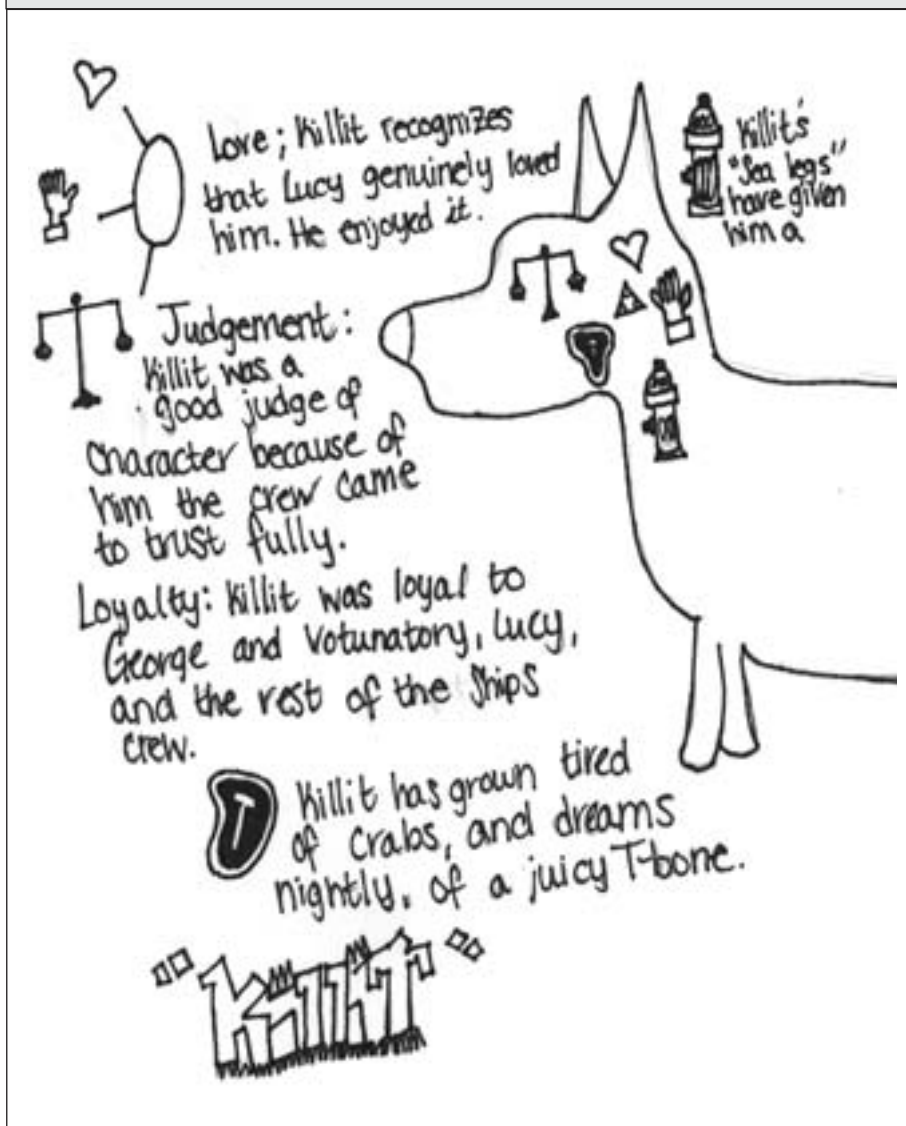 Love; Killit recognizes
that Lucy genuinely loved
him. He enjoyed it.
Killit's
"Sea legs"
have given
him a
Judgement:
Killit was a
good judge of
character because of
him the crew came
to trust fully.
Loyalty: Killit was loyal to
George and Votunatory, Lucy,
and the rest of the Ships
crew.
T
Killit has grown tired
of Crabs, and dreams
nightly, of a juicy T-bone.
Killit